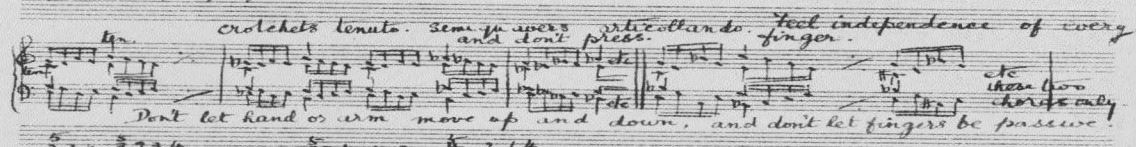 crotchets tenuto. semiquavers articollando. Feel independence of every
and don't press. finger.
ten.
etc
etc
etc
these two
chords only.
Don't let hand or arm move up and down, and don't let fingers be passive.